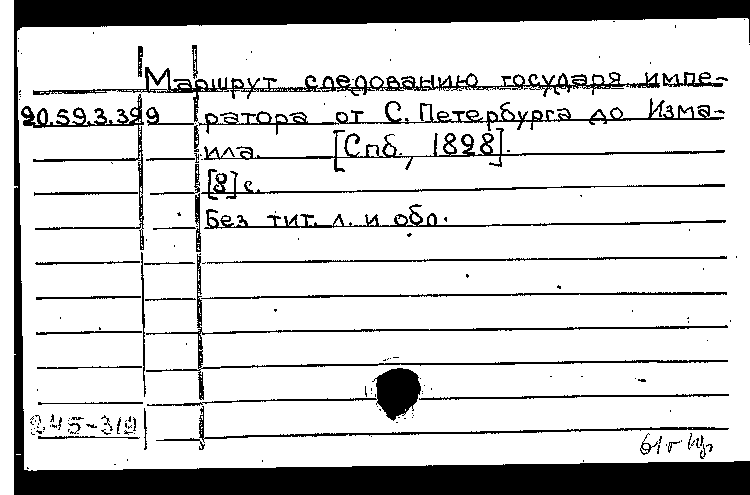 Маршрут следованию государя импе-
90.59.3.399 ратора от С. Петербурга до Изма-
ила. [Спб, 1828].
[8] с.
Без тит. л. и обл.
245-319